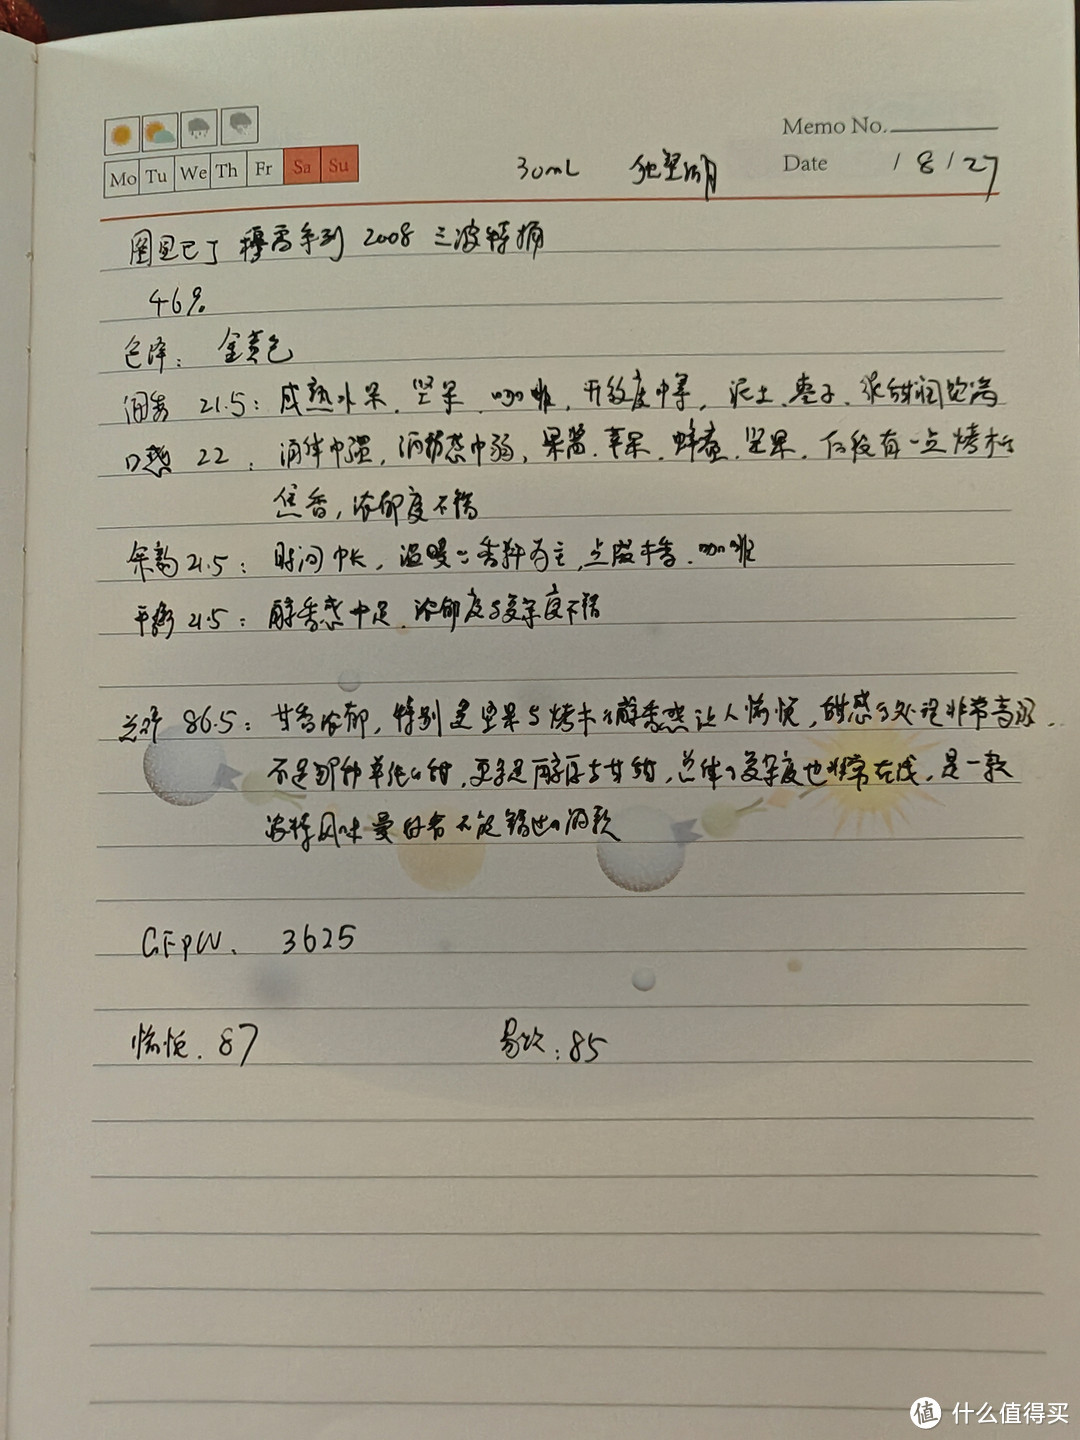 Memo No.
Mo Tu We Th Fr Sa Su
30mL
Date / 8 / 27
图里巴丁 穆雷系列 2008 三波特桶
46%
色泽: 金黄色
闻香 21.5: 成熟水果、坚果、咖啡, 开放度中等, 泥土、枣子、
口感 22: 酒体中强, 酒精感中弱, 果酱、苹果、蜂蜜、坚果, 后段有一点烤木
焦香, 浓郁度不错
余韵 21.5: 时间中长, 温暖的香料为主, 点缀木香、咖啡
平衡 21.5: 醇香感中足、浓郁度与复杂度不错
总评 86.5: 甘香浓郁, 特别是坚果与烤木的醇香感让人愉悦, 甜感的处理非常高级,
不是那种单纯的甜, 更多是醇厚与甘甜, 总体的复杂度也非常在线, 是一款
波特风味爱好者不能错过的酒款
GFPW. 3625
愉悦. 87 易饮: 85
值 什么值得买